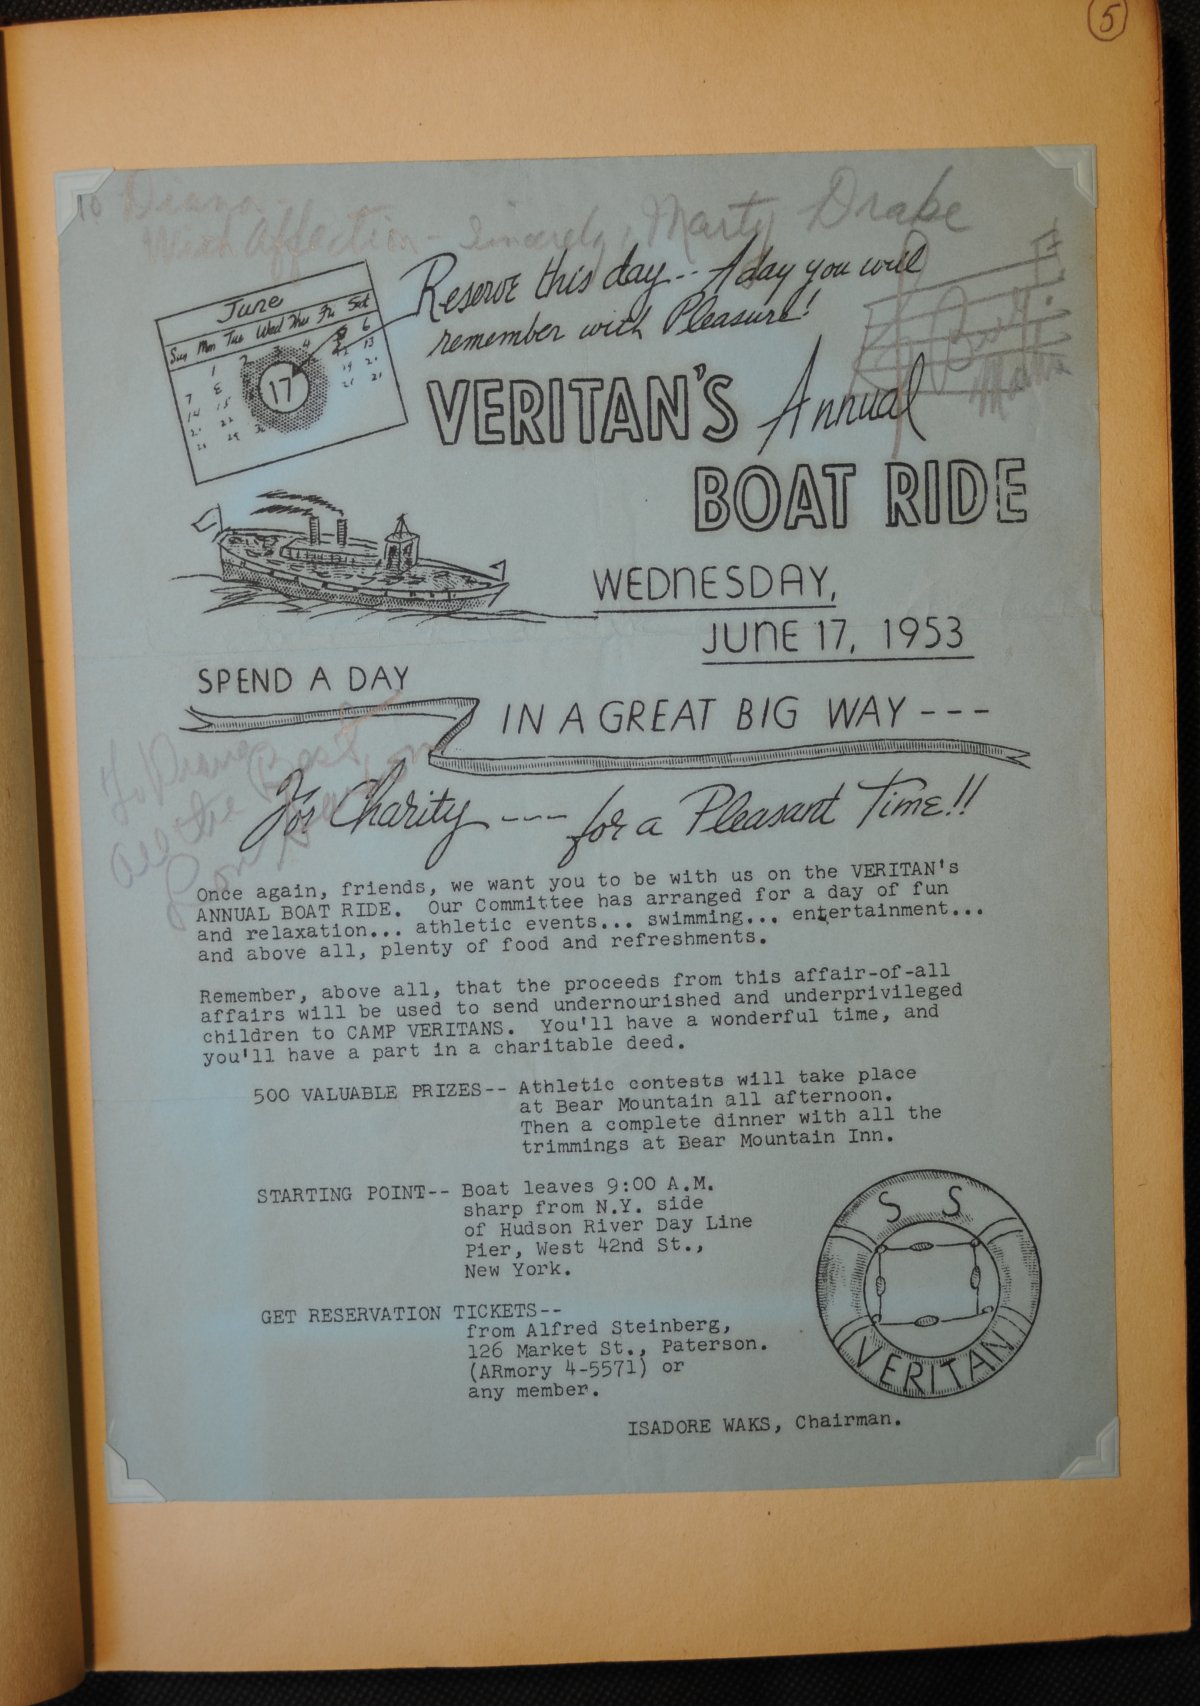 5
To Diana -
With Affection - Sincerely, Marty Drake
June
Sun Mon Tue Wed Thu Fri Sat
17
Reserve this day -- A day you will
remember with Pleasure!
VERITAN'S Annual
BOAT RIDE
WEDNESDAY,
JUNE 17, 1953
SPEND A DAY
IN A GREAT BIG WAY ---
To Diana
All the Best
For Charity ---- for a Pleasant Time!!
Once again, friends, we want you to be with us on the VERITAN's
ANNUAL BOAT RIDE. Our Committee has arranged for a day of fun
and relaxation... athletic events... swimming... entertainment...
and above all, plenty of food and refreshments.
Remember, above all, that the proceeds from this affair-of-all
affairs will be used to send undernourished and underprivileged
children to CAMP VERITANS. You'll have a wonderful time, and
you'll have a part in a charitable deed.
500 VALUABLE PRIZES-- Athletic contests will take place
at Bear Mountain all afternoon.
Then a complete dinner with all the
trimmings at Bear Mountain Inn.
STARTING POINT-- Boat leaves 9:00 A.M.
sharp from N.Y. side
of Hudson River Day Line
Pier, West 42nd St.,
New York.
GET RESERVATION TICKETS--
from Alfred Steinberg,
126 Market St., Paterson.
(ARmory 4-5571) or
any member.
S S
VERITAN
ISADORE WAKS, Chairman.